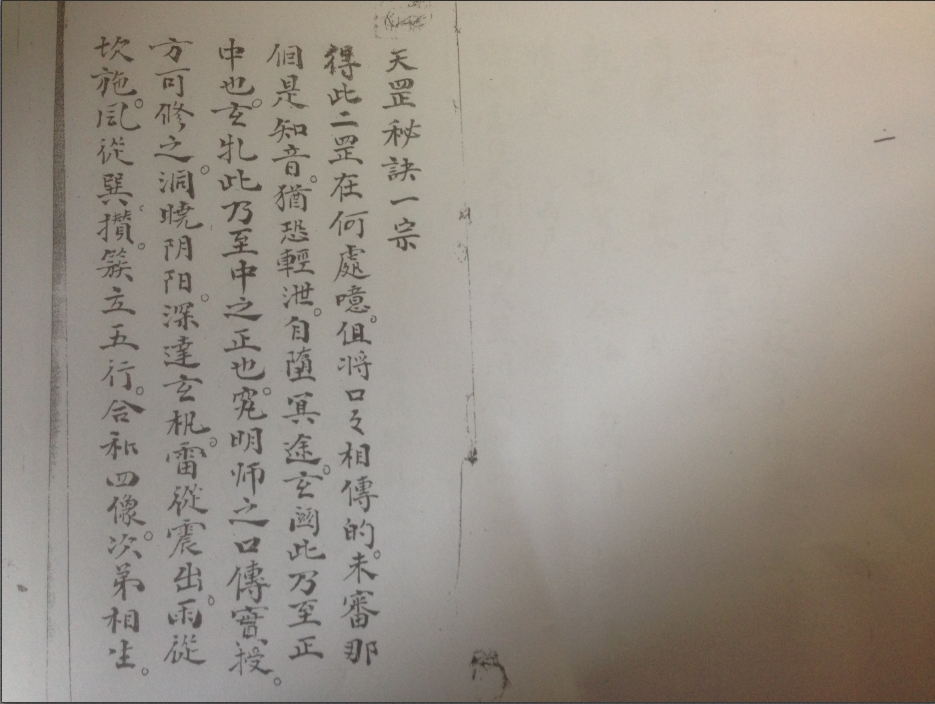 天罡秘訣一宗
得此二罡在何處噫。但將口々相傳的。未審那
個是知音。猶恐輕泄。自墮冥途。玄関此乃至正
中也。玄牝此乃至中之正也。究明师之口傳實授。
方可修之。洞曉阴阳。深達玄机。雷從震出。雨從
坎施。風從巽攢。簇立五行。合和四像。次第相生。